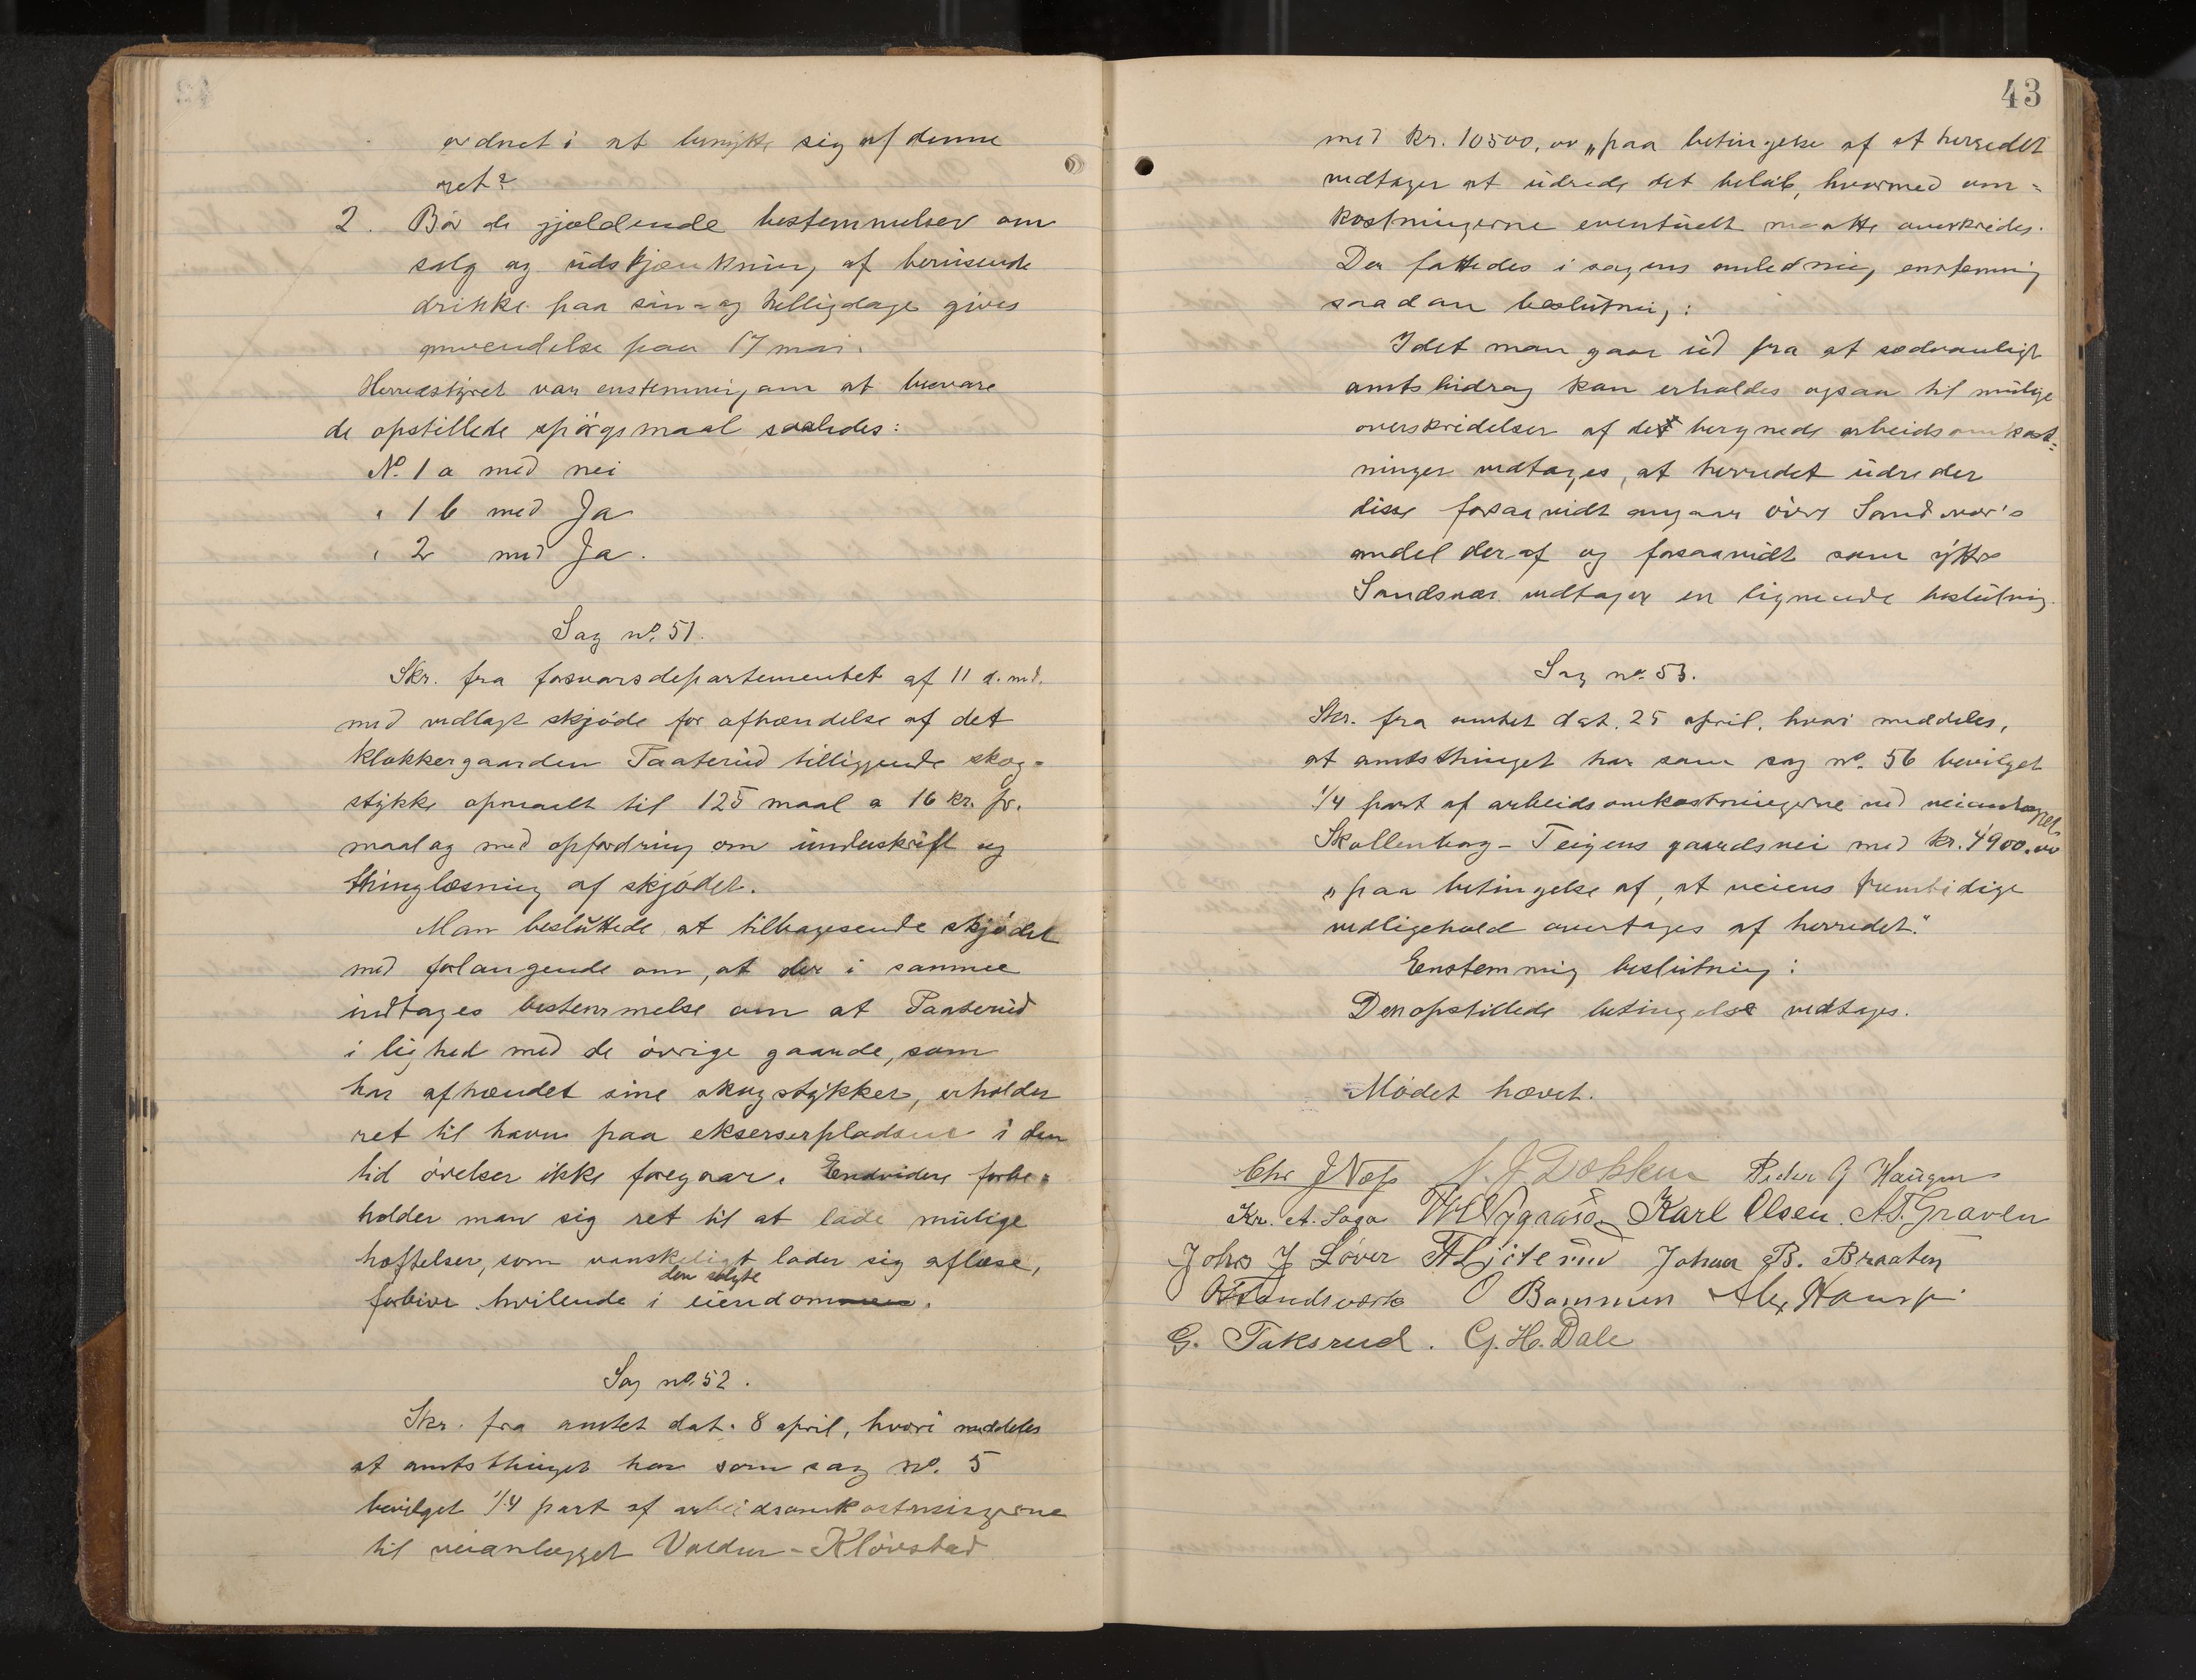 ordnet i at benytte sig af denne
ret?
2. Bør de gjældende bestemmelser om
salg og udskjænkning af berusende
drikke paa søn- og helligdage gives
anvendelse paa 17 mai.
Herredstyret var enstemmig om at besvare
de opstillede spørgsmaal saaledes:
No. 1 a med nei
" 1 b med Ja
" 2 med Ja.
Sag no. 51.
Skr. fra forsvarsdepartementet af 11 d. md.
med vedlagt skjøde for afhændelse af det
klokkergaarden Taaterud tilliggende skog-
stykke opmaalt til 125 maal a 16 kr. pr.
maal og med opfordring om underskrift og
thinglæsning af skjødet.
Man besluttede at tilbagesende skjødet
med forlangende om, at der i samme
indtages bestemmelse om at Taaterud
i lighed med de øvrige gaarde, som
har afhændet sine skogstykker, erholder
ret til havn paa ekserserpladsene i den
tid øvelser ikke foregaar. Endvidere forbe-
holder man sig ret til at lade mulige
heftelser, som vanskeligt lader sig aflæse,
forblive hvilende i den solgte eiendom.
Sag no. 52.
Skr. fra amtet dat. 8 april, hvori meddeles
at amtsthinget har som sag no. 5
bevilget 1/4 part af arbeidsomkostningerne
til veianlægget Valdur - Kløvstad
43
med kr. 10500,00 „paa betingelse af at herredet
vedtager at udrede det beløb, hvormed om-
kostningerne eventuelt maatte overskrides.
Der fattedes i sagens anledning enstemmig
saadan beslutning:
Idet man gaar ud fra at sedvanligt
amtsbidrag kan erholdes ogsaa til mulige
overskridelser af de beregnede arbeidsomkost-
ninger vedtages, at herredet udreder
disse forsaavidt angaar øvre Sandsvær's
andel deraf og forsaavidt som ytre
Sandsvær vedtager en lignende beslutning.
Sag no. 53.
Skr. fra amtet dat. 25 april, hvori meddeles,
at amtsthinget har som sag no. 56 bevilget
1/4 part af arbeidsomkostningerne ved veianlægget
Skollenborg - Teigens gaardsvei med kr. 4900,00
„paa betingelse af, at veiens fremtidige
vedligehold overtages af herredet."
Enstemmig beslutning:
Den opstillede betingelse vedtages.
Mødet hævet.
Chr J Næss N. J. Dokken Peder G Haugen
Kr. A. Saga Karl Olsen. A. T. Graven
Johs J Løver Johan B. Braaten
O Bommen Alex
G. Taksrud. G. H. Dale